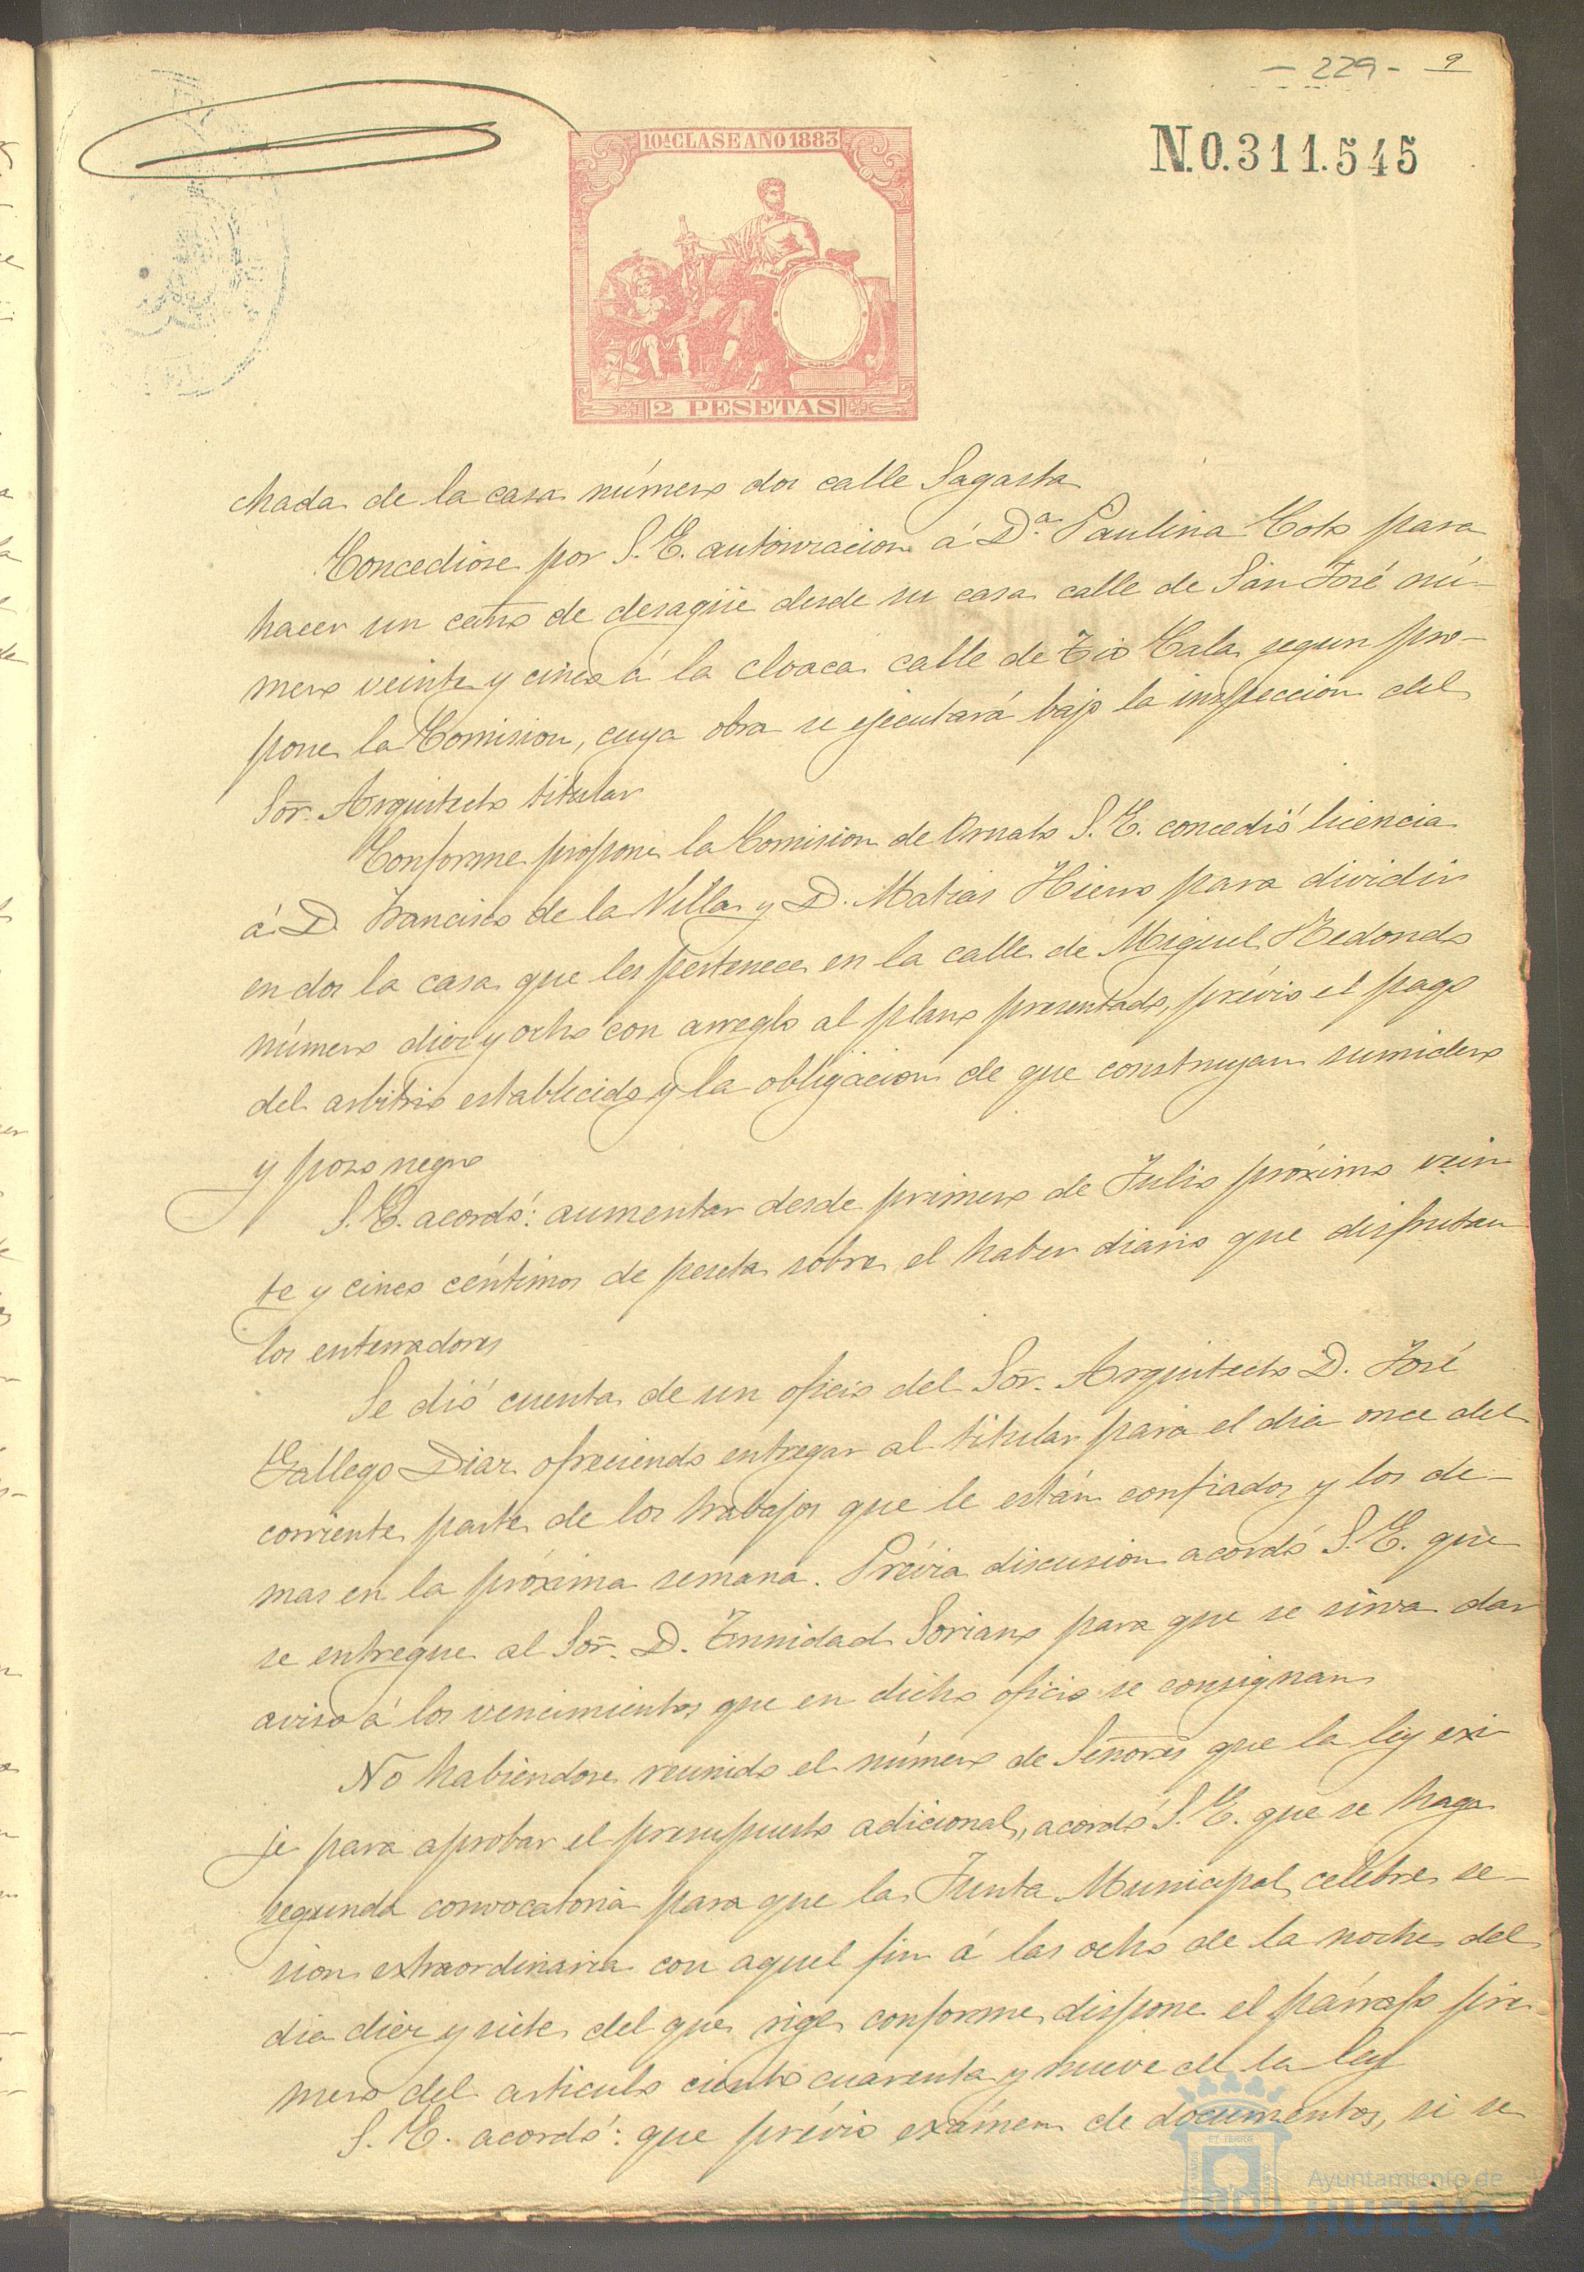 - 229 - 9
10ª CLASE AÑO 1883
N.0.311.545
2 PESETAS
chada de la casa número dos calle Sagasta
Concedióse por S. E. autorizacion á D.ª Paulina Coto para
hacer un caño de desagüe desde su casa calle de San José nú-
mero veinte y cinco á la cloaca calle de Tio Cala segun pro-
pone la Comision, cuya obra se ejecutará bajo la inspeccion del
Sor. Arquitecto titular
Conforme propone la Comision de Ornato S. E. concedió licencia
á D. Francisco de la Villa y D. Matias Hierro para dividir
en dos la casa que les pertenece en la calle de Miguel Redondo
número diez y ocho con arreglo al plano presentado, prévio el pago
del arbitrio establecido y la obligacion de que construyan sumidero
y pozo negro
S. E. acordó: aumentar desde primero de Julio próximo vein
te y cinco céntimos de peseta sobre el haber diario que disfrutan
los enterradores
Se dió cuenta de un oficio del Sor. Arquitecto D. José
Gallego Diaz ofreciendo entregar al titular para el dia once del
corriente parte de los trabajos que le están confiados y los de-
mas en la próxima semana. Prévia discusion acordó S. E. que
se entregue al Sor. D. Trinidad Soriano para que se sirva dar
aviso á los vencimientos que en dicho oficio se consignan
No habiendose reunido el número de Señores que la ley exi
je para aprobar el presupuesto adicional, acordó S. E. que se haga
segunda convocatoria para que la Junta Municipal celebre se-
sion extraordinaria con aquel fin á las ocho de la noche del
dia diez y siete del que rige conforme dispone el párrafo pri-
mero del articulo ciento cuarenta y nueve de la ley
S. E. acordó: que prévio exámen de documentos, si se
Ayuntamiento de
HUELVA